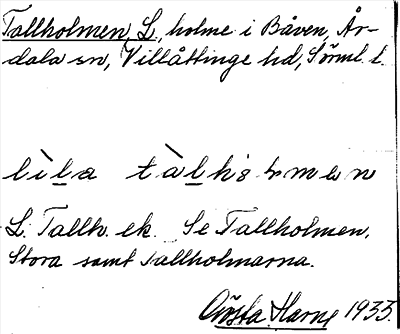 Tallholmen, L., holme i Båven, År-
dala sn, Villåttinge hd, Sörml. l.
lìla tàlhɔlmen
L. Tallh. ek. Se Tallholmen,
Stora samt Tallholmarna.
Gösta Harne 1933.